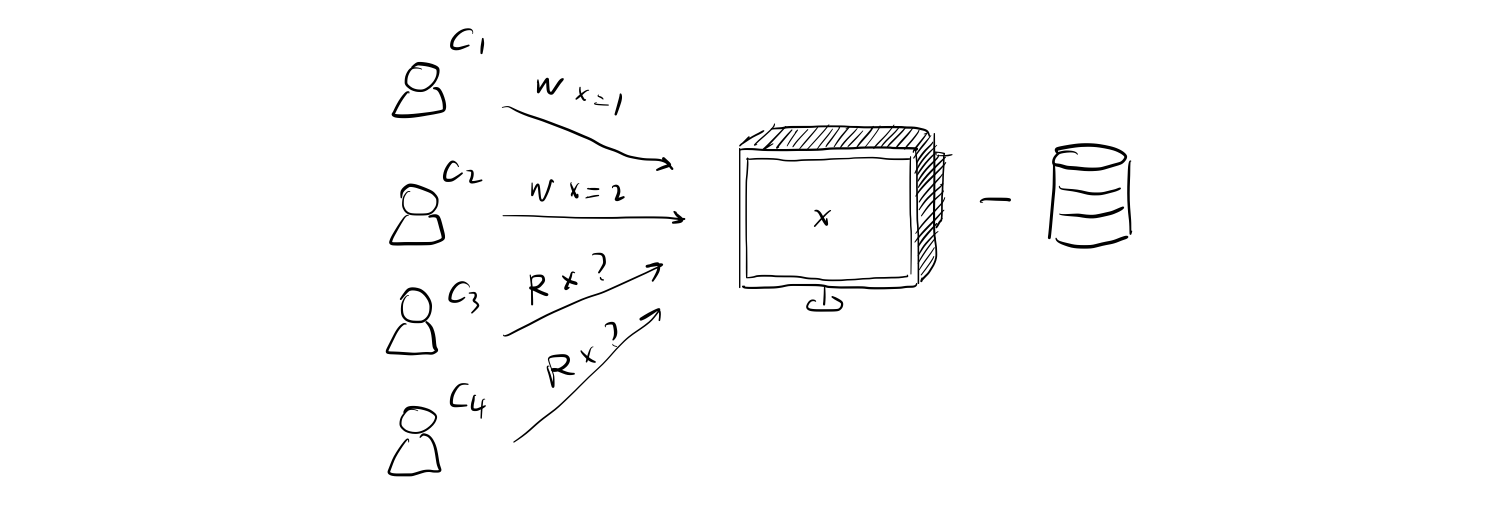 C1
W x=1
C2
W x=2
C3
R x?
C4
R x?
X